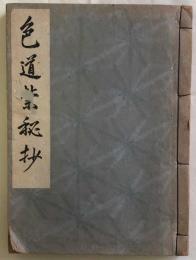 色道柴秘抄